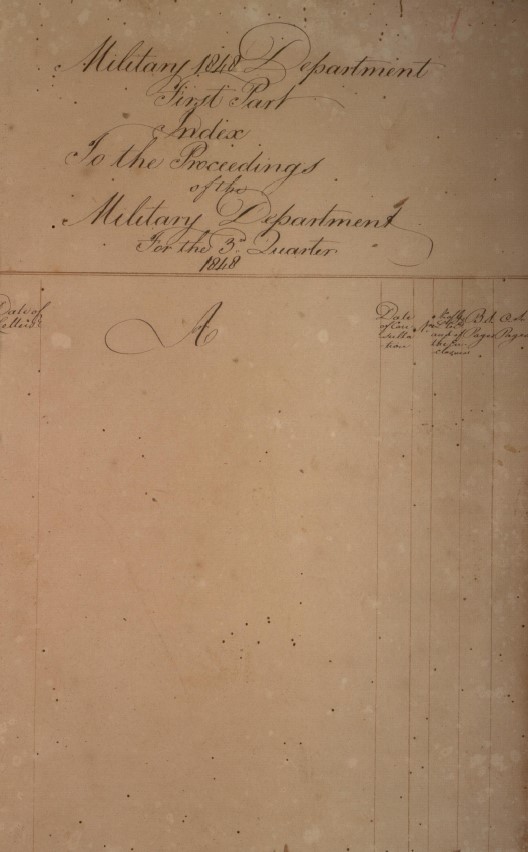 Military 1848 Department
First Part
Index
To the Proceedings
of the
Military Department
For the 3d. Quarter
1848
Date of
Letters
A
Date
of Con
sulta
tion
No
and of
the In
closures
Bd.
Pages
Cd.
Pages